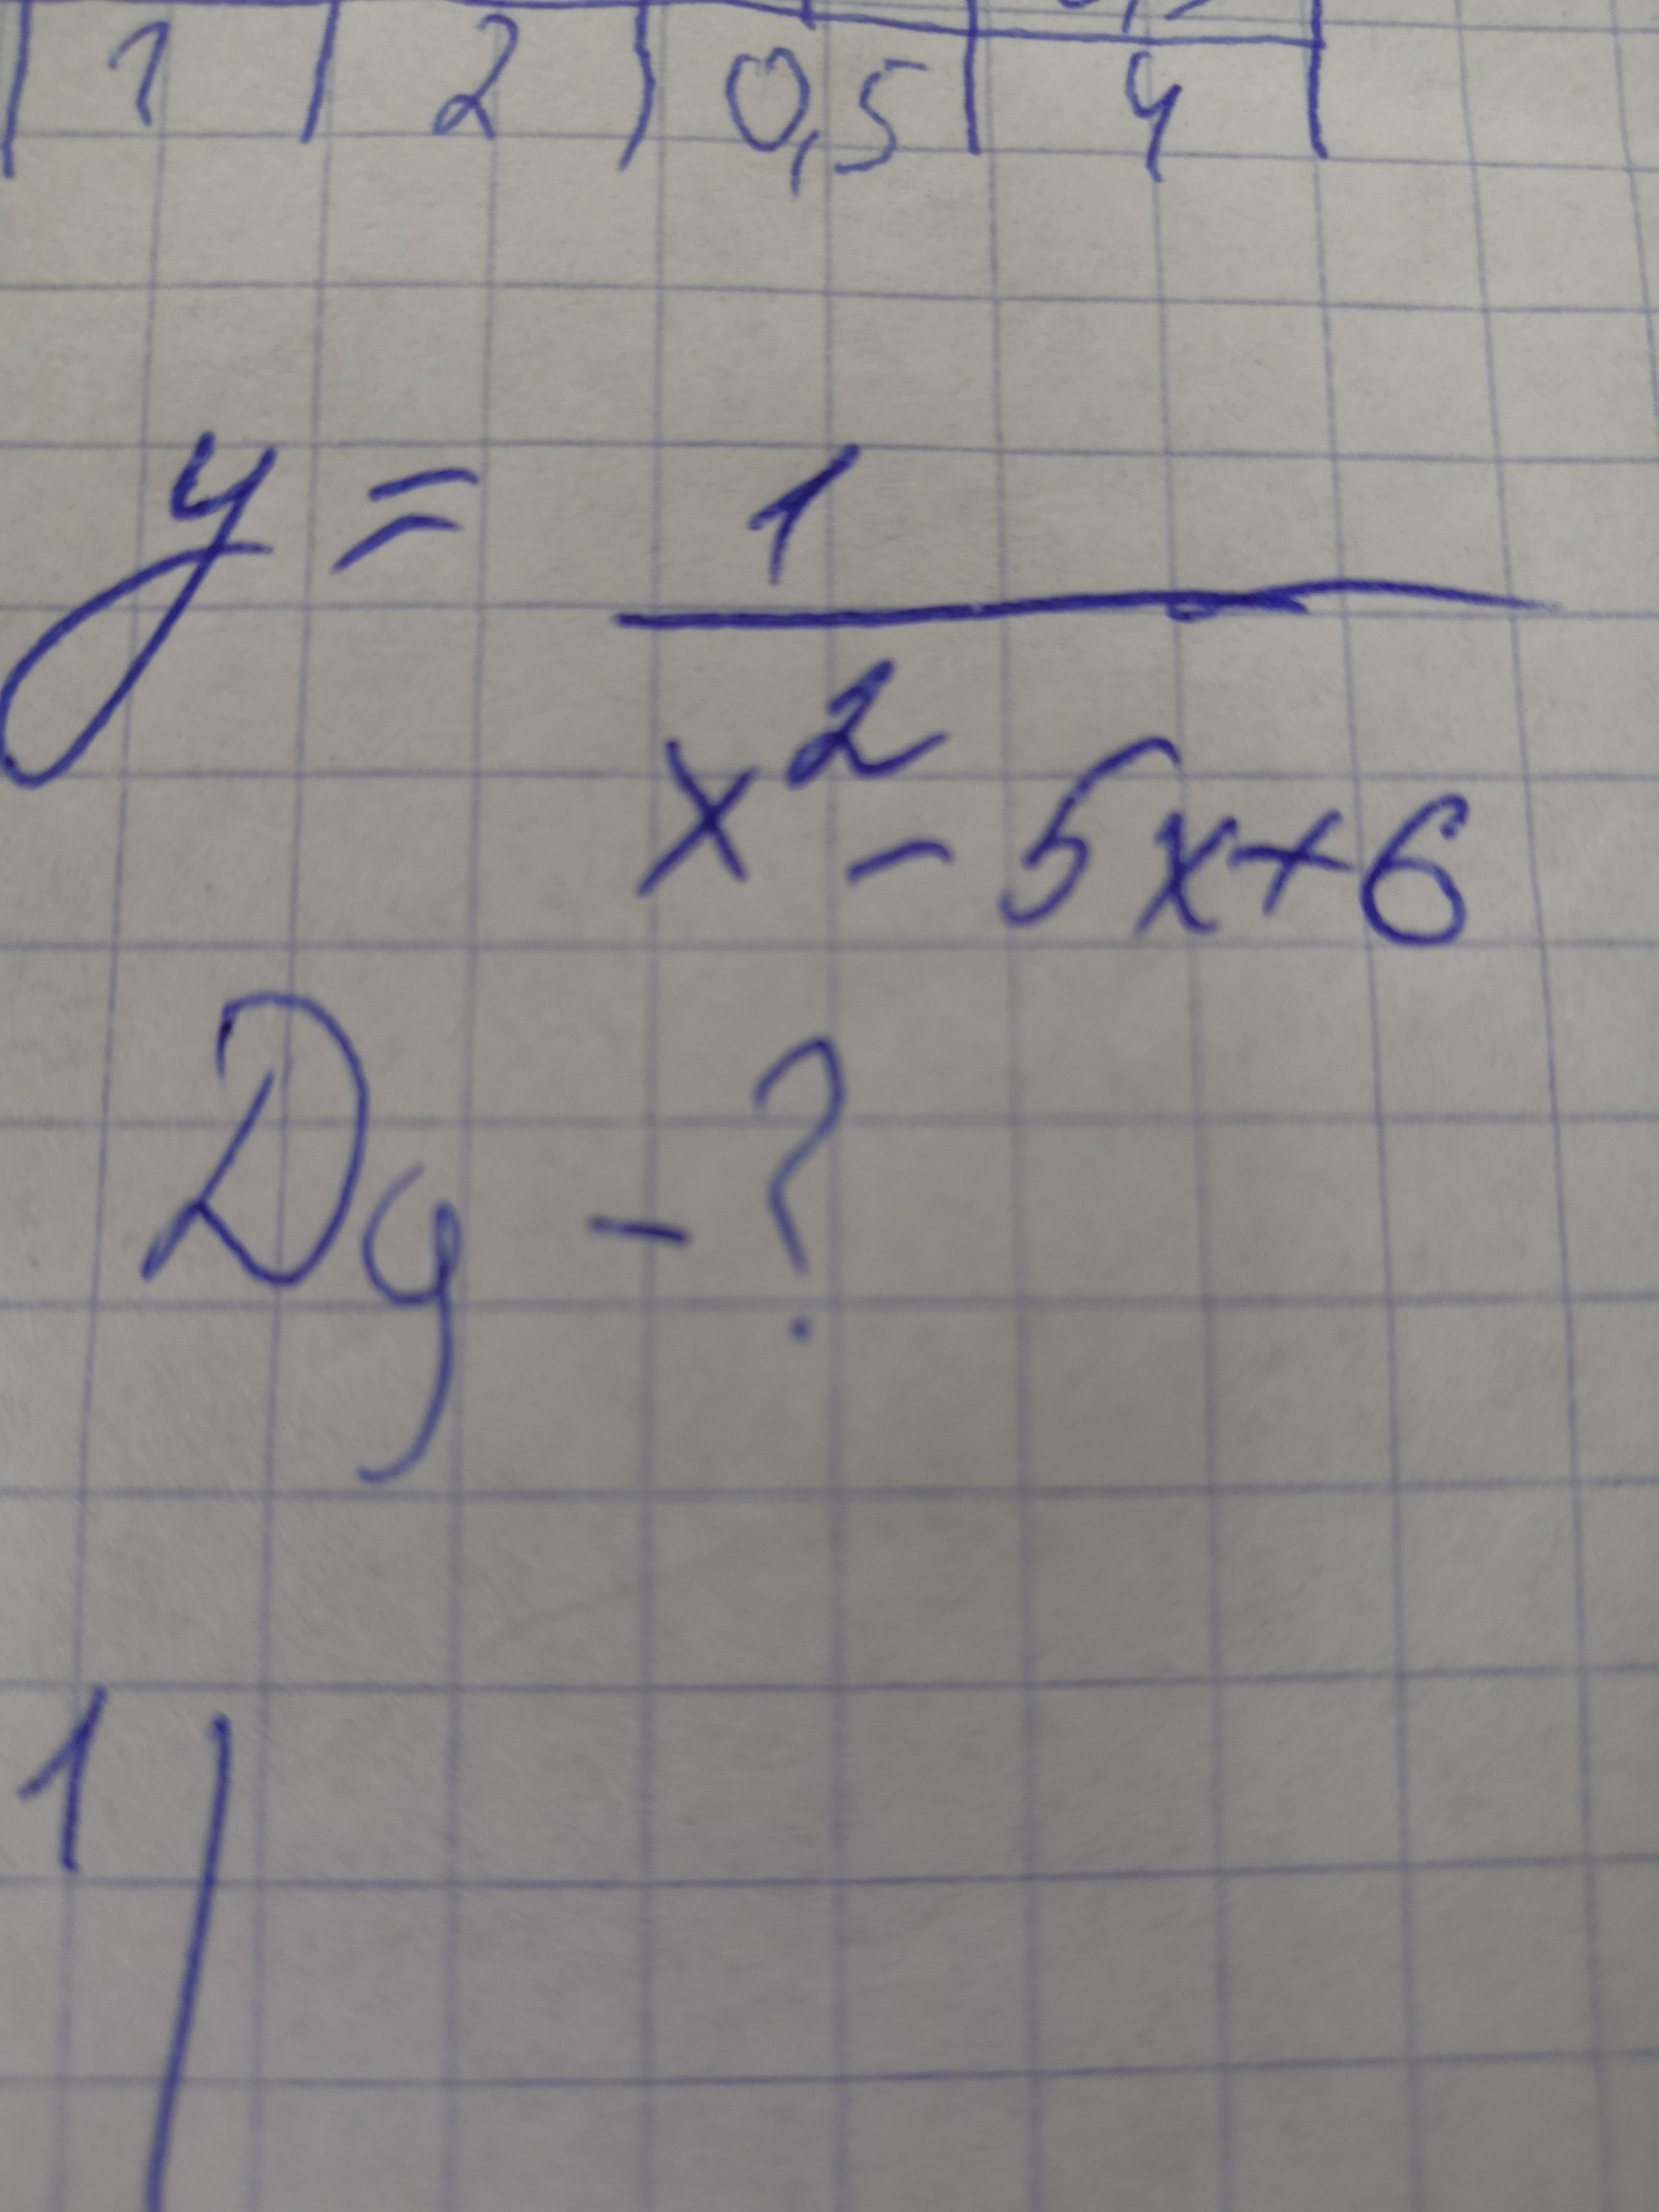 1 2 0,5 4
y = 1
x² - 5x+6
Dy - ?
1)